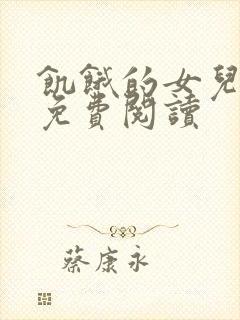 飢餓的女兒
免費閱讀
蔡康永